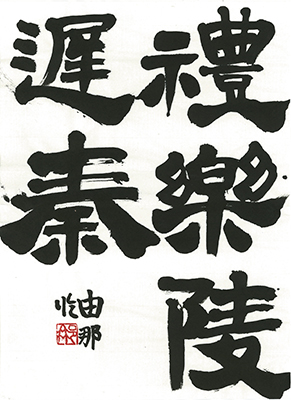 禮樂陵
遲秦
由那